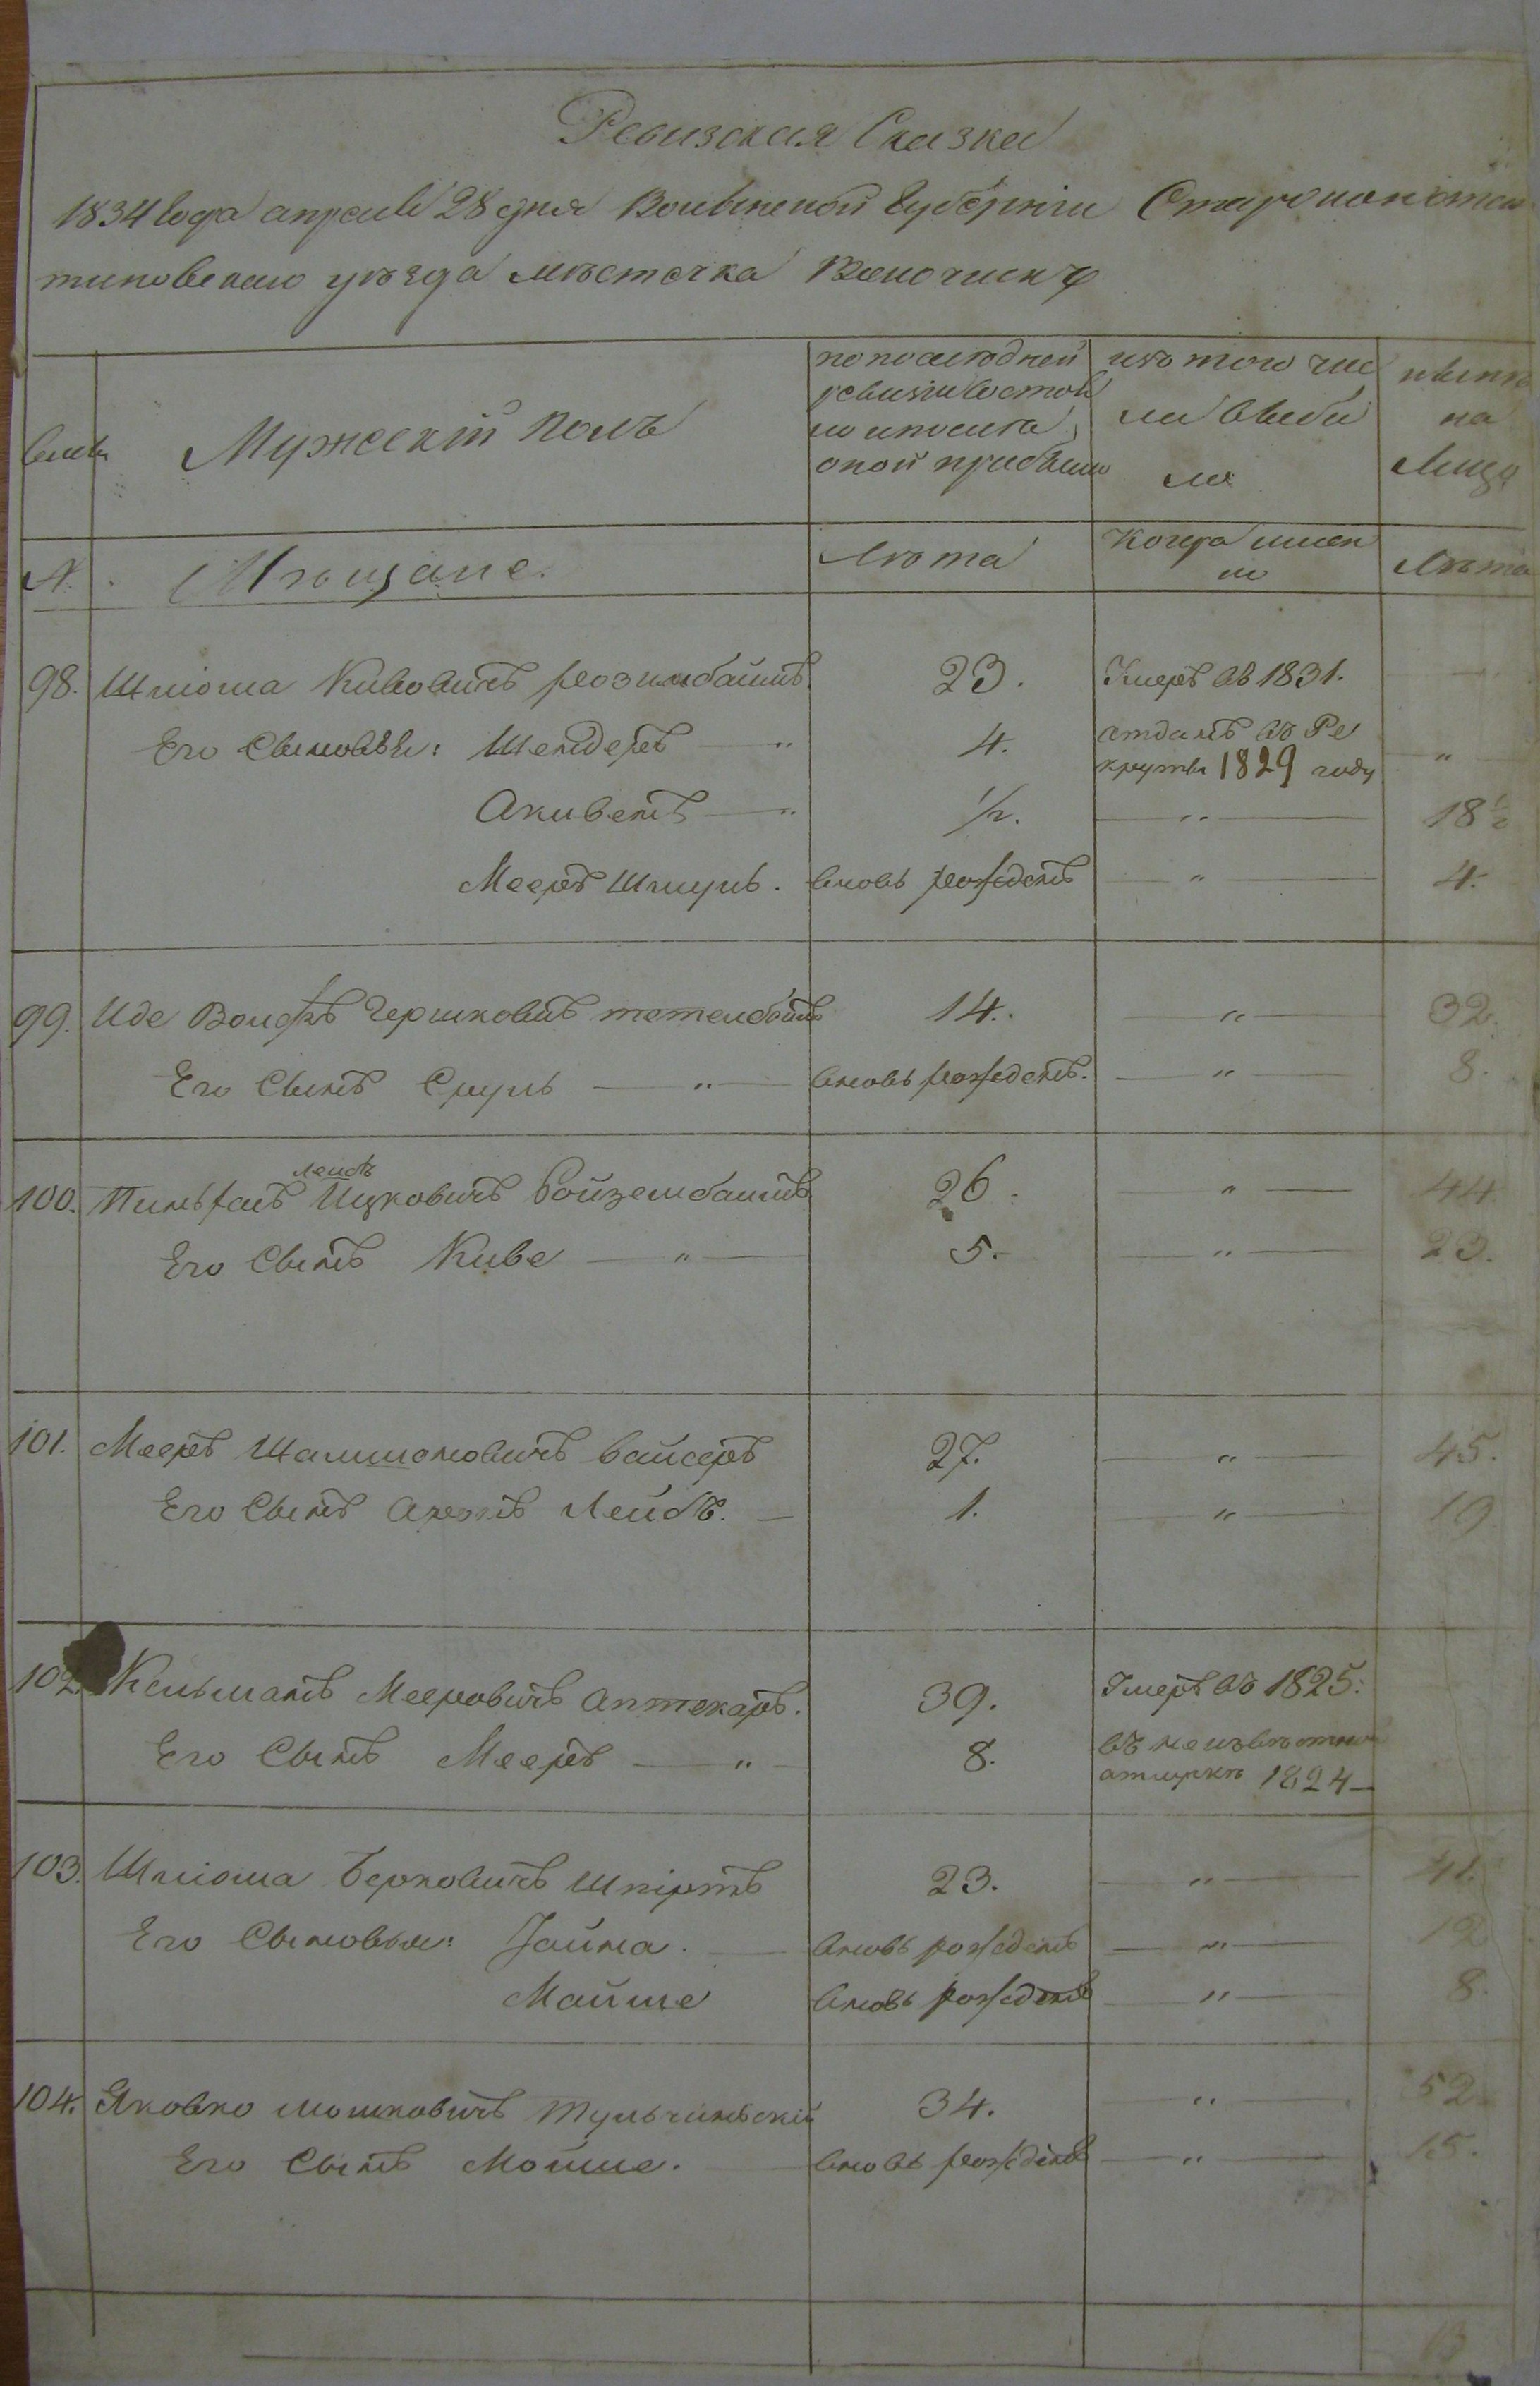 Ревизская Сказка
1834 Года апреля 28 дня Волынской Губернiи Староконстан
тиновского уѣзда мѣстечка Волочискъ
Семьи Мужескiй полъ по последней ревизiи состоя ло и после оной прибыло изъ того чис ла выбы ло нынѣ на Лицо
№. Мѣщане. Лѣта Когда имен но Лѣта
98. Шлiома Кивовичъ розинбаимъ. 23. Умеръ въ 1831.
Его Сыновья: Шендеръ — " 4. отданъ въ Ре круты 1829 году "
Акивенъ — " 1/2. " 18 1/2
Мееръ Шмуль. вновь рожденъ " 4.
99. Иде Волфъ Гершковичъ тетенбоимъ 14. " 32.
Его Сынъ Сруль — " — вновь рожденъ. " 8.
100. Пинхасъ лейбъ Ицковичъ Бойзембаимъ 26. " 44.
Его Сынъ Киве — " — 5. " 23.
101. Мееръ Шаллиомовичъ Вайсеръ 27. " 45.
Его Сынъ Аронъ Лейбъ. — 1. " 19
102. Кельманъ Мееровичъ Аптекаръ. 39. Умеръ въ 1825:
Его Сынъ Мееръ — " — 8. въ неизвѣстной отлучкѣ 1824 —
103. Шлiома Берковичъ Шпiртъ 23. " 41.
Его Сыновья: Хайма. — вновь рожденъ " 12
Мойше вновь рожденъ " 8.
104. Яковко Мошковичъ Тульчинскiй 34. " 52.
Его Сынъ Мойше. вновь рожденъ " 15.